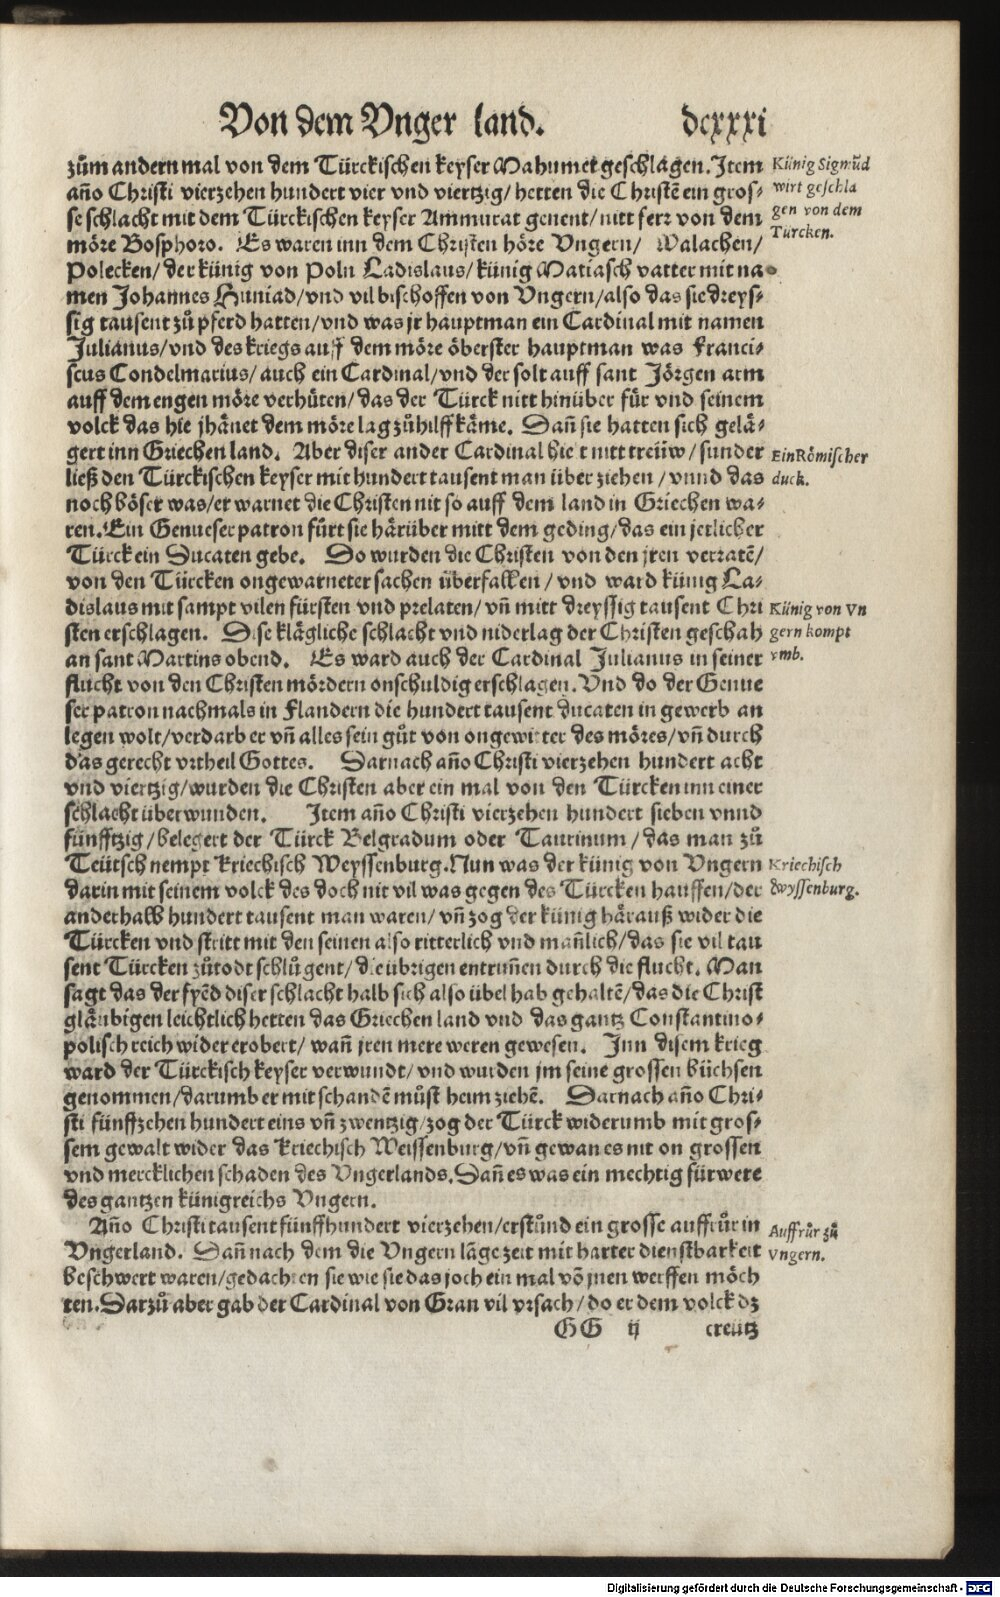 Von dem Vnger land. dcxxxi
zům andern mal von dem Türckischen keyser Mahumet geschlagen. Item
año Christi vierzehen hundert vier vnd viertzig/ hetten die Christē ein gros-
se schlacht mit dem Türckischen keyser Ammurat genent/ nitt ferr von dem
möre Bosphoro. Es waren inn dem Christen höre Vngern/ Walachen/
Polecken/ der künig von Poln Ladislaus/ künig Matiasch vatter mit na-
men Johannes Huniad/ vnd vil bischoffen von Vngern/ also das sie dreys-
sig tausent zů pferd hatten/ vnd was jr hauptman ein Cardinal mit namen
Julianus/ vnd des kriegs auff dem möre öberster hauptman was Franci-
scus Condelmarius/ auch ein Cardinal/ vnd der solt auff sant Jörgen arm
auff dem engen möre verhüten/ das der Türck nitt hinüber für vnd seinem
volck das hie jhänet dem möre lag zů hilff käme. Dañ sie hatten sich gelä-
gert inn Griechen land. Aber diser ander Cardinal hielt nitt treüw/ sunder
ließ den Türckischen keyser mit hundert tausent man über ziehen/ vnnd das
noch böser was/ er warnet die Christen nit so auff dem land in Griechen wa-
ren. Ein Genueser patron fürt sie härüber mitt dem geding/ das ein jetlicher
Türck ein Ducaten gebe. Do wurden die Christen von den jren verratē/
von den Türcken ongewarneter sachen überfallen/ vnd ward künig La-
dislaus mit sampt vilen fürsten vnd prelaten/ vñ mitt dreyssig tausent Chri
sten erschlagen. Dise klägliche schlacht vnd niderlag der Christen geschah
an sant Martins obend. Es ward auch der Cardinal Julianus in seiner
flucht von den Christen mördern onschuldig erschlagen. Vnd do der Genue
ser patron nachmals in Flandern die hundert tausent ducaten in gewerb an
legen wolt/ verdarb er vñ alles sein gůt von ongewitter des möres/ vñ durch
das gerecht vrtheil Gottes. Darnach año Christi vierzehen hundert acht
vnd viertzig/ wurden die Christen aber ein mal von den Türcken inn einer
schlacht überwunden. Item año Christi vierzehen hundert sieben vnnd
fünfftzig/ belegert der Türck Belgradum oder Taurinum/ das man zů
Teütsch nempt Kriechisch Weyssenburg. Nun was der künig von Vngern
darin mit seinem volck des doch nit vil was gegen des Türcken hauffen/ der
anderhalb hundert tausent man waren/ vñ zog der künig härauß wider die
Türcken vnd stritt mit den seinen also ritterlich vnd mañlich/ das sie vil tau
sent Türcken zů todt schlůgent/ die übrigen entruñen durch die flucht. Man
sagt das der fyēd diser schlacht halb sich also übel hab gehaltē/ das die Christ
gläubigen leichtlich hetten das Griechen land vnd das gantz Constantino-
polisch reich wider erobert/ wañ jren mere weren gewesen. Inn disem krieg
ward der Türckisch keyser verwundt/ vnd wurden jm seine grossen büchsen
genommen/ darumb er mit schandē můst heim ziehē. Darnach año Chri-
sti fünffzehen hundert eins vñ zwentzig/ zog der Türck widerumb mit gros-
sem gewalt wider das Kriechisch Weissenburg/ vñ gewan es nit on grossen
vnd mercklichen schaden des Vngerlands. Dañ es was ein mechtig fürwere
des gantzen künigreichs Vngern.
Año Christi tausent fünffhundert vierzehen/ erstůnd ein grosse auffrůr in
Vngerland. Dañ nach dem die Vngern lāge zeit mit harter dienstbarkeit
beschwert waren/ gedachten sie wie sie das joch ein mal vō jnen werffen möch
ten. Darzů aber gab der Cardinal von Gran vil vrsach/ do er dem volck dz
GG ij creütz
Künig Sigmūd
wirt geschla
gen von dem
Türcken.
Ein Römischer
duck.
Künig von Vn
gern kompt
vmb.
Kriechisch
Wyssenburg.
Auffrůr zů
Vngern.
Digitalisierung gefördert durch die Deutsche Forschungsgemeinschaft - DFG